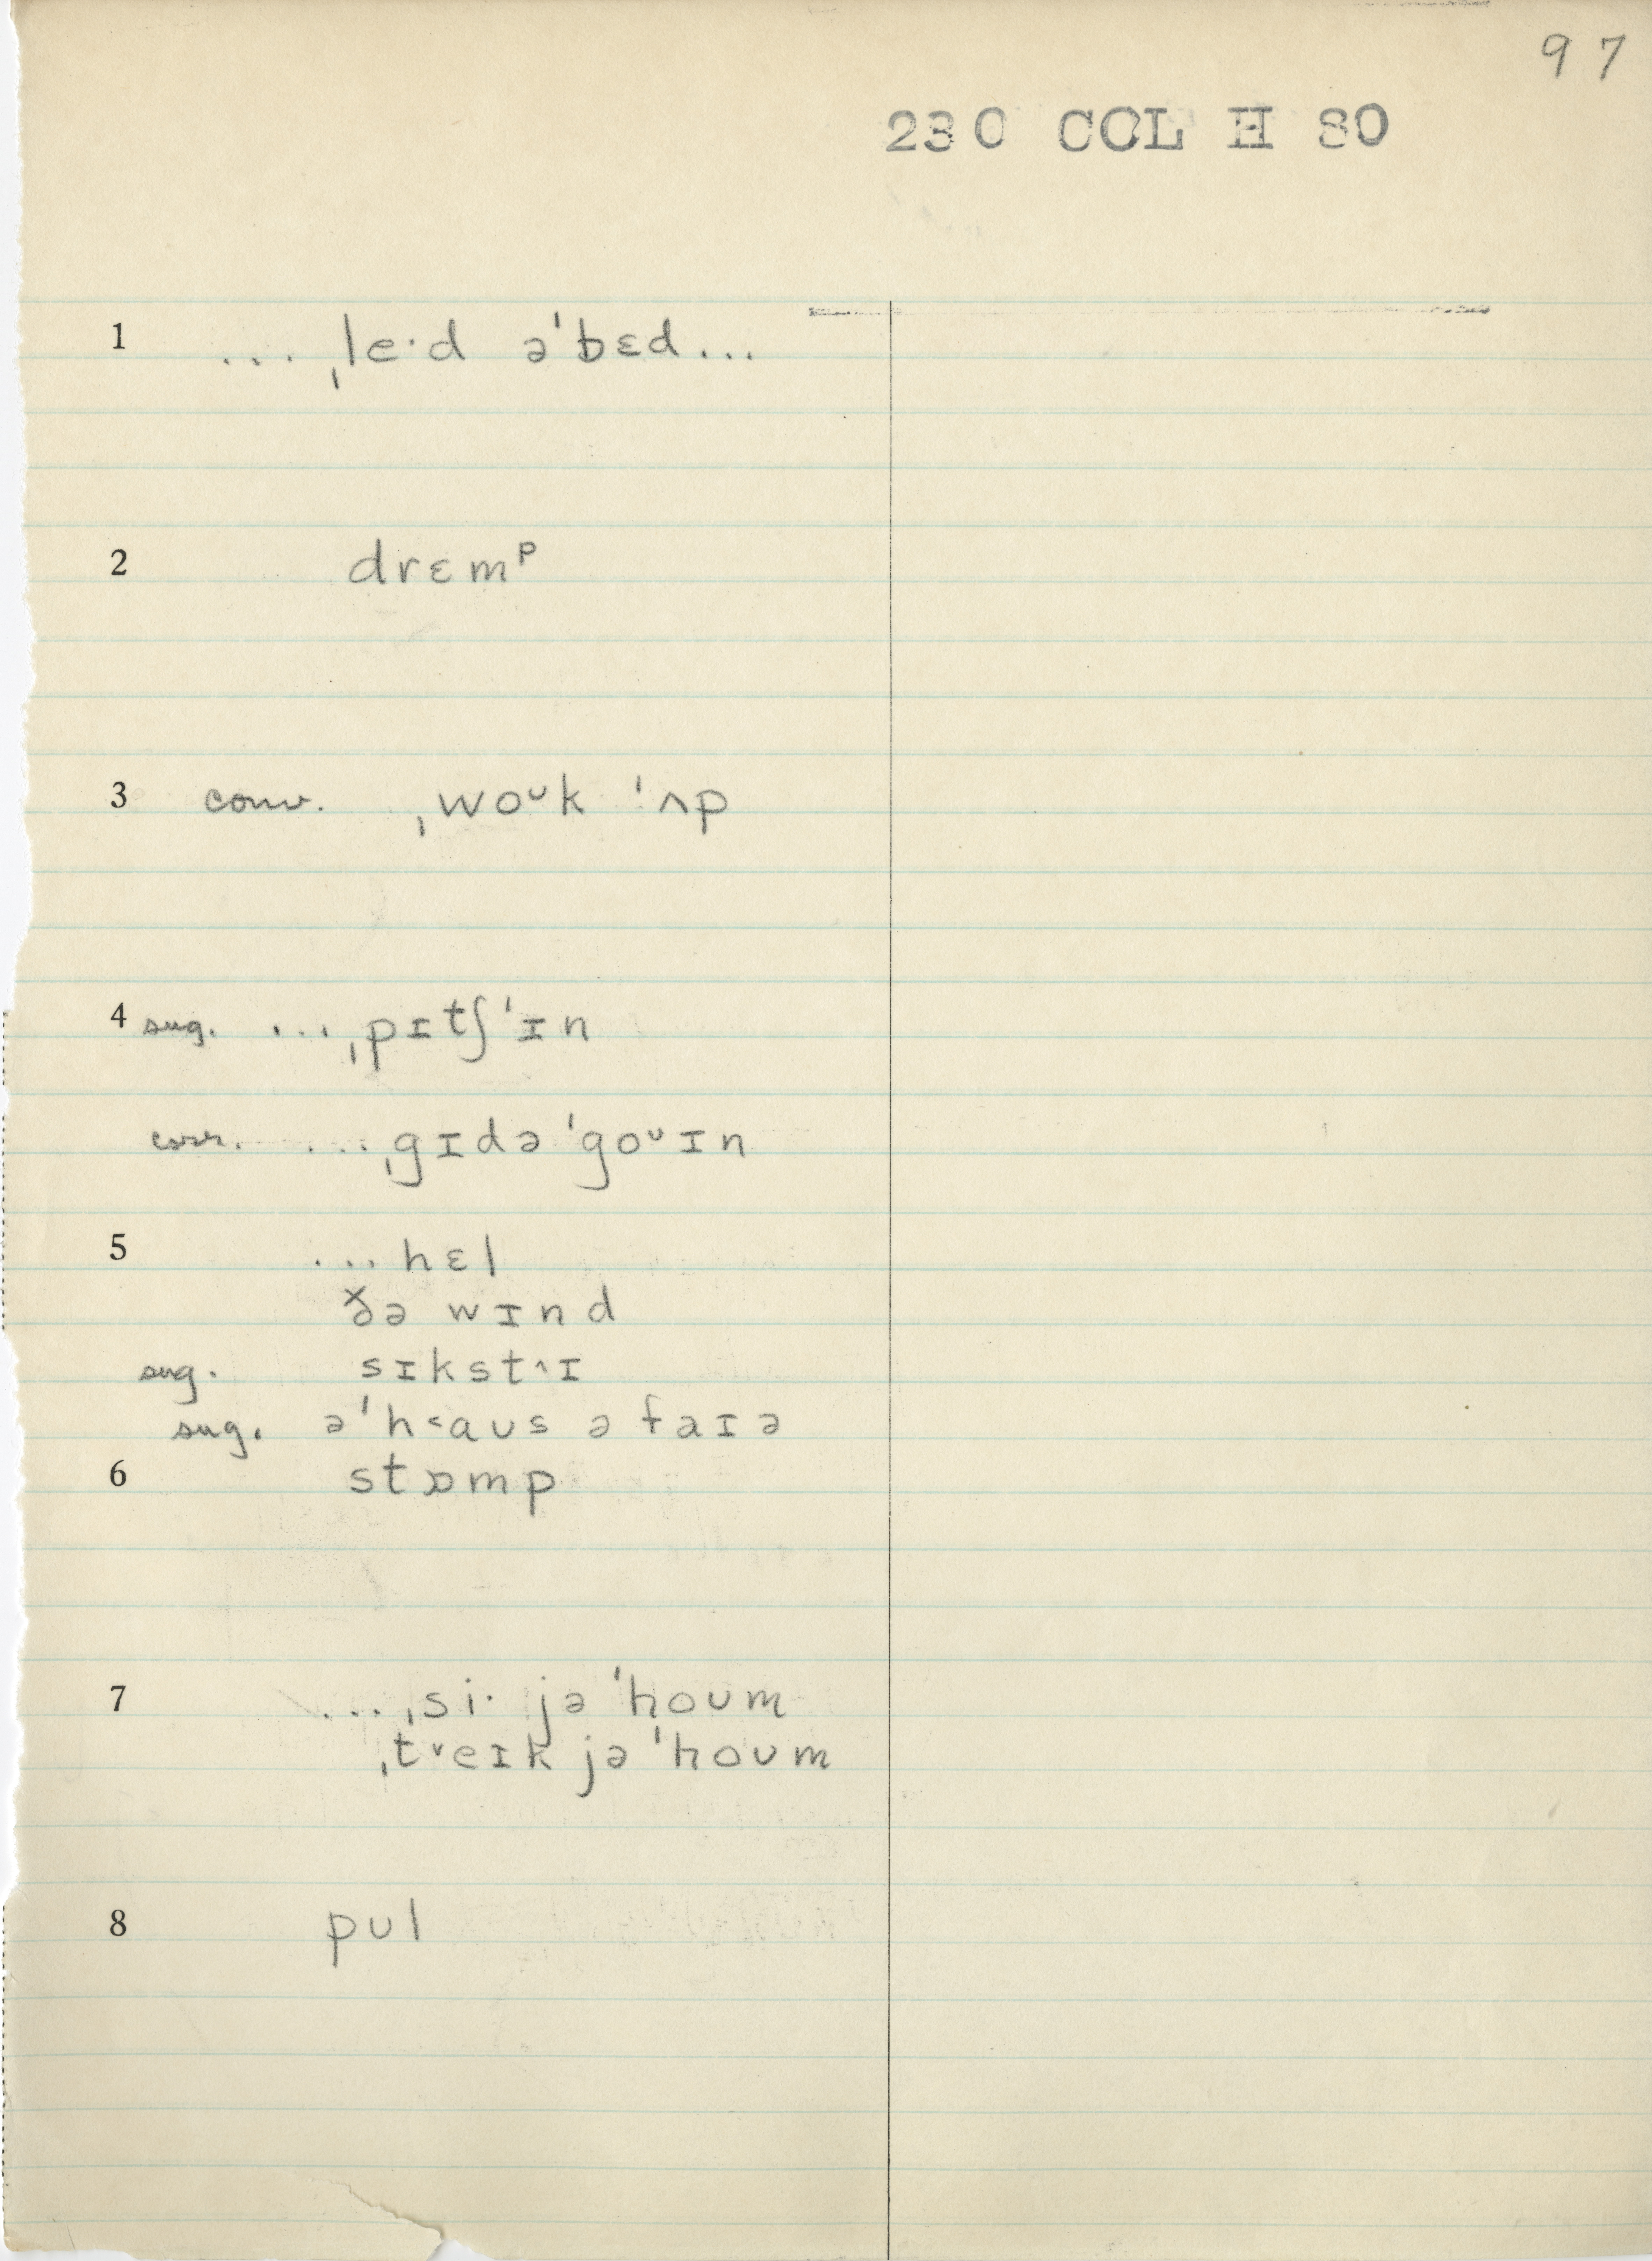 97
230 CCL H 80
1 ... ˌle·d ə'bɛd...
2 drɛmᵖ
3 conv. ˌwoᶷk 'ʌp
4 sug. ... ˌpɪtʃ'ɪn
corr. ... ˌgɪdə'goᶷɪn
5 ...hɛl
ðə wɪnd
sug. sɪkst^ɪ
sug. ə'h<aʊs ə faɪə
6 stɒmp
7 ... ˌsi· jə'hoʊm
ˌt˅eɪk jə'hoʊm
8 pʊl